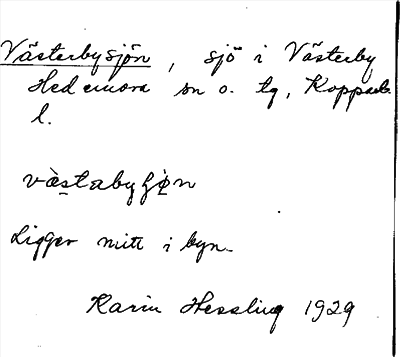 Västerbysjön, sjö i Västerby
Hedemora sn o. tg, Kopparb.
l.
Ligger mitt i byn.
Karin Hessling 1929